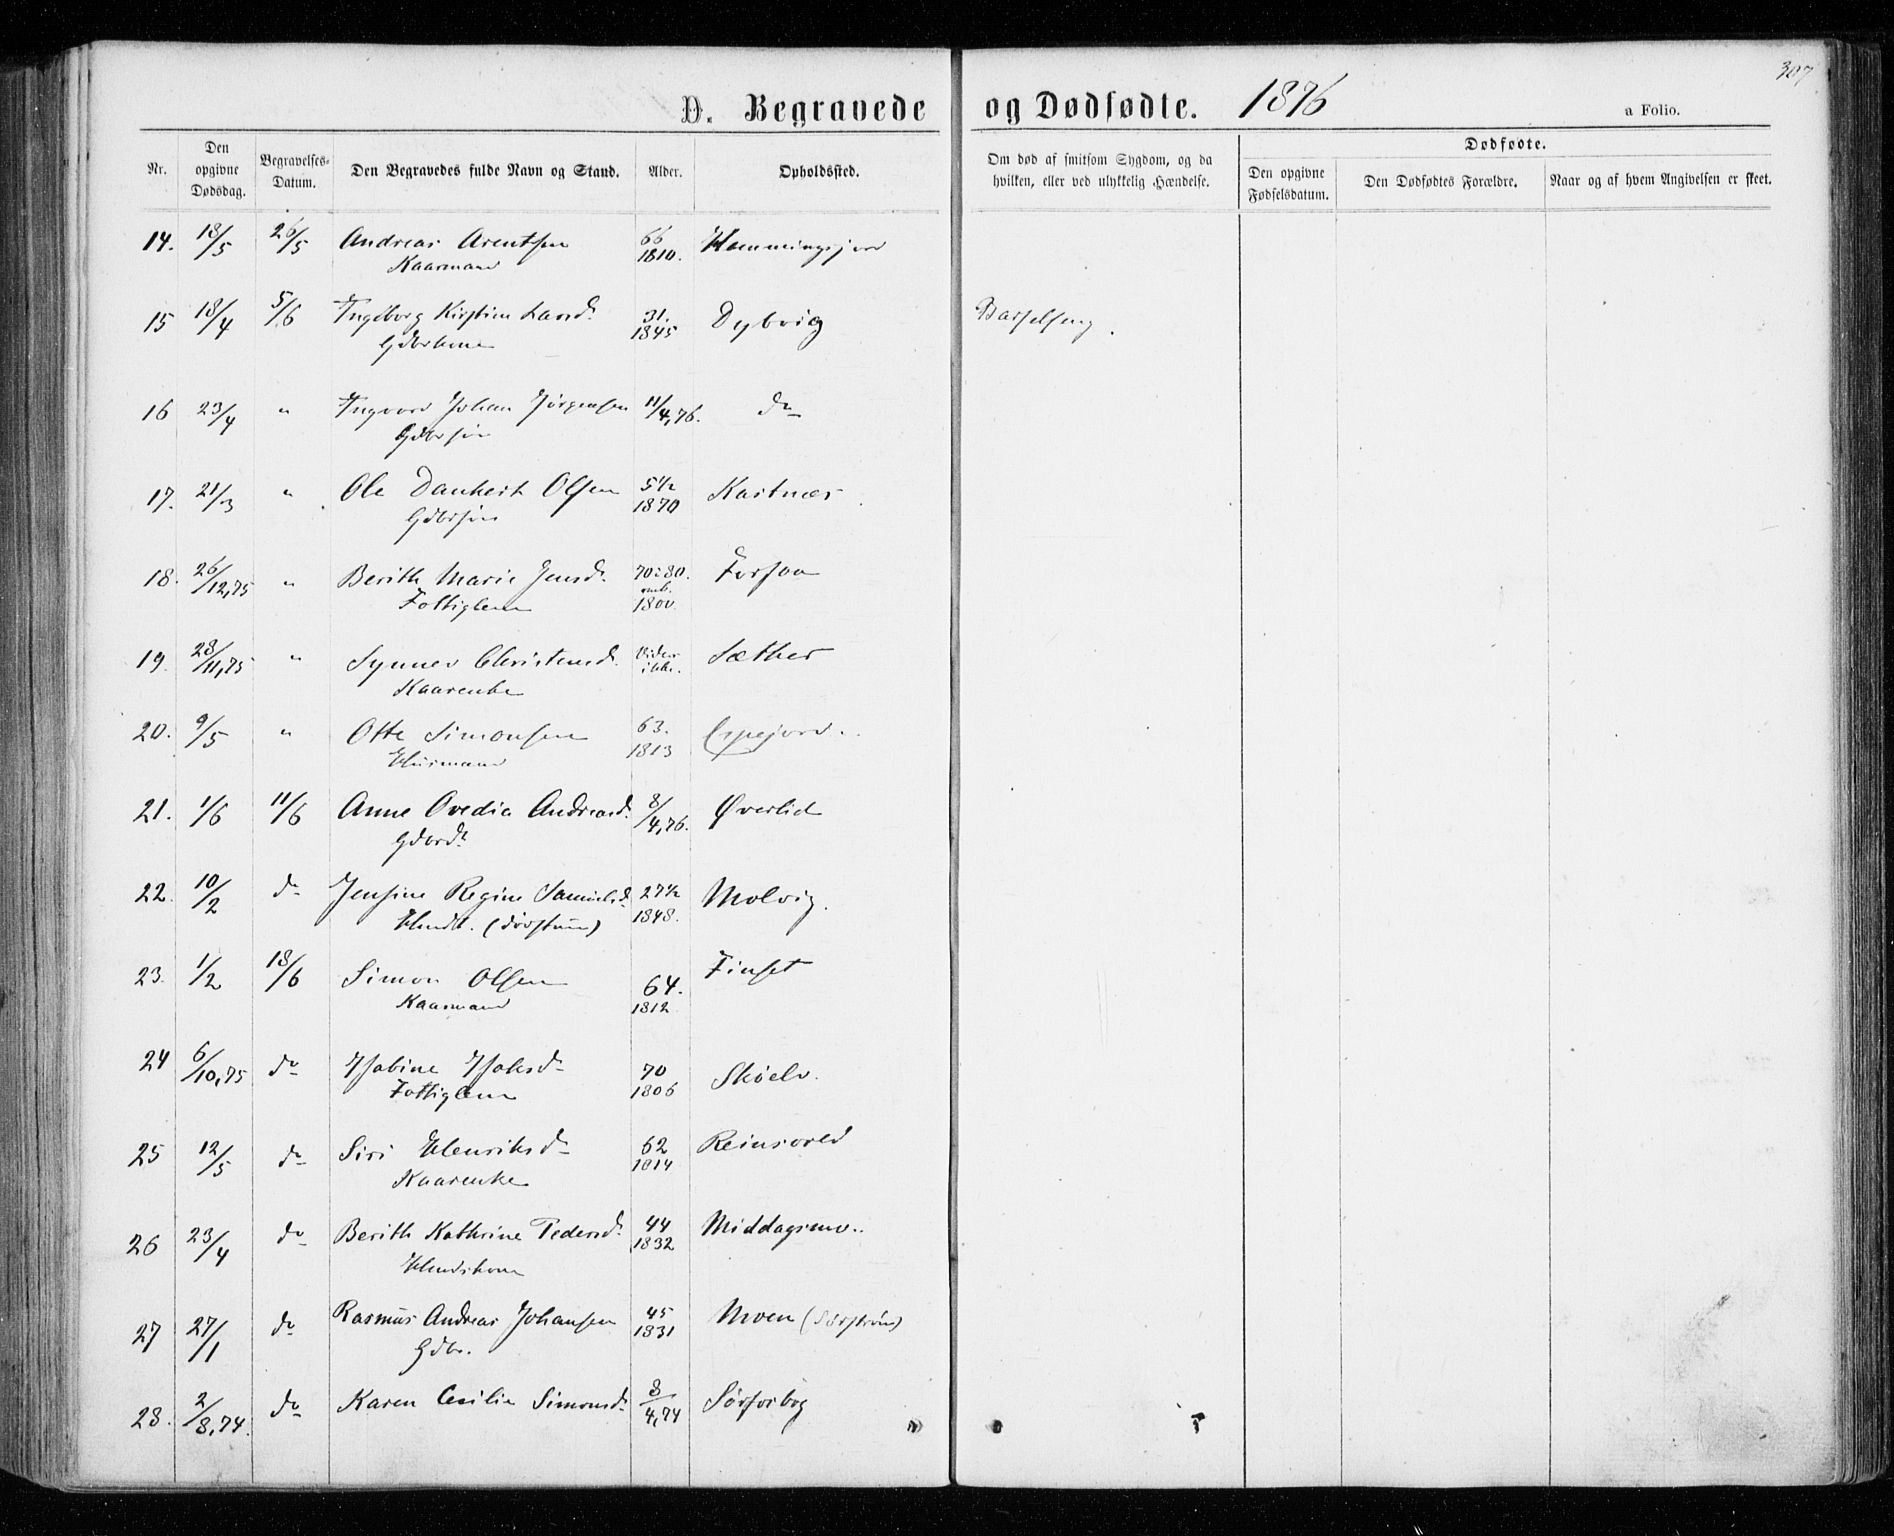 307
D. Begravede og Dødfødte. 1876
a Folio.
Nr. Den opgivne Dødsdag. Begravelses-Datum. Den Begravedes fulde Navn og Stand. Alder. Opholdssted. Om død af smitsom Sygdom, og da hvilken, eller ved ulykkelig Hændelse. Dødfødte. Den opgivne Fødselsdatum. Den Dødfødtes Forældre. Naar og af hvem Angivelsen er skeet.
14. 18/5 26/5 Andreas Arentsen 66 Hemmingsjord
Kaarmand 1810.
15 18/4 5/6 Ingeborg Kirstine Larsd. 31. Dybvig Barselseng.
Gdbrkone 1845
16 23/4 " Ingvard Johan Jørgensen 11/4,76. do
Gdbrsøn
17. 21/3 " Ole Dankert Olsen 5 1/2 Kastnæs
Gdbrsøn 1870
18. 26/12,75 " Berith Marie Jensd. 70 à 80. Forsaa
Fattiglem omtr. 1800.
19. 28/11,75 " Synnev Christensd. Vides ikke. Sæther
Kaarenke
20. 9/5 " Otte Simonsen 63. Espejord.
Husmand 1813
21. 1/6 11/6 Anne Ovedia Andreasd. 8/4,76. Øverlid
Gdbrdr
22. 10/2 do Jensine Regine Samuelsd. 27 1/2 Molvig.
1848.
23. 1/2 18/6 Simon Olsen 64. Finset
Kaarmand 1812
24 6/10,75 do Isabine Isaksd 70 Skøelv.
Fattiglem 1806
25 12/5 do Siri Henriksd 62 Reinsvold
Kaarenke 1814
26 23/4 do Berith Kathrine Pedersd. 44 Middagsnes.
Husmkone 1832
27 27/1 do Rasmus Andreas Johansen 45 Moen (Sørstrøm)
Gdbr. 1831
28. 2/8,74. do Karen Cesilie Simonsd. 8/4,74 Sørforbog